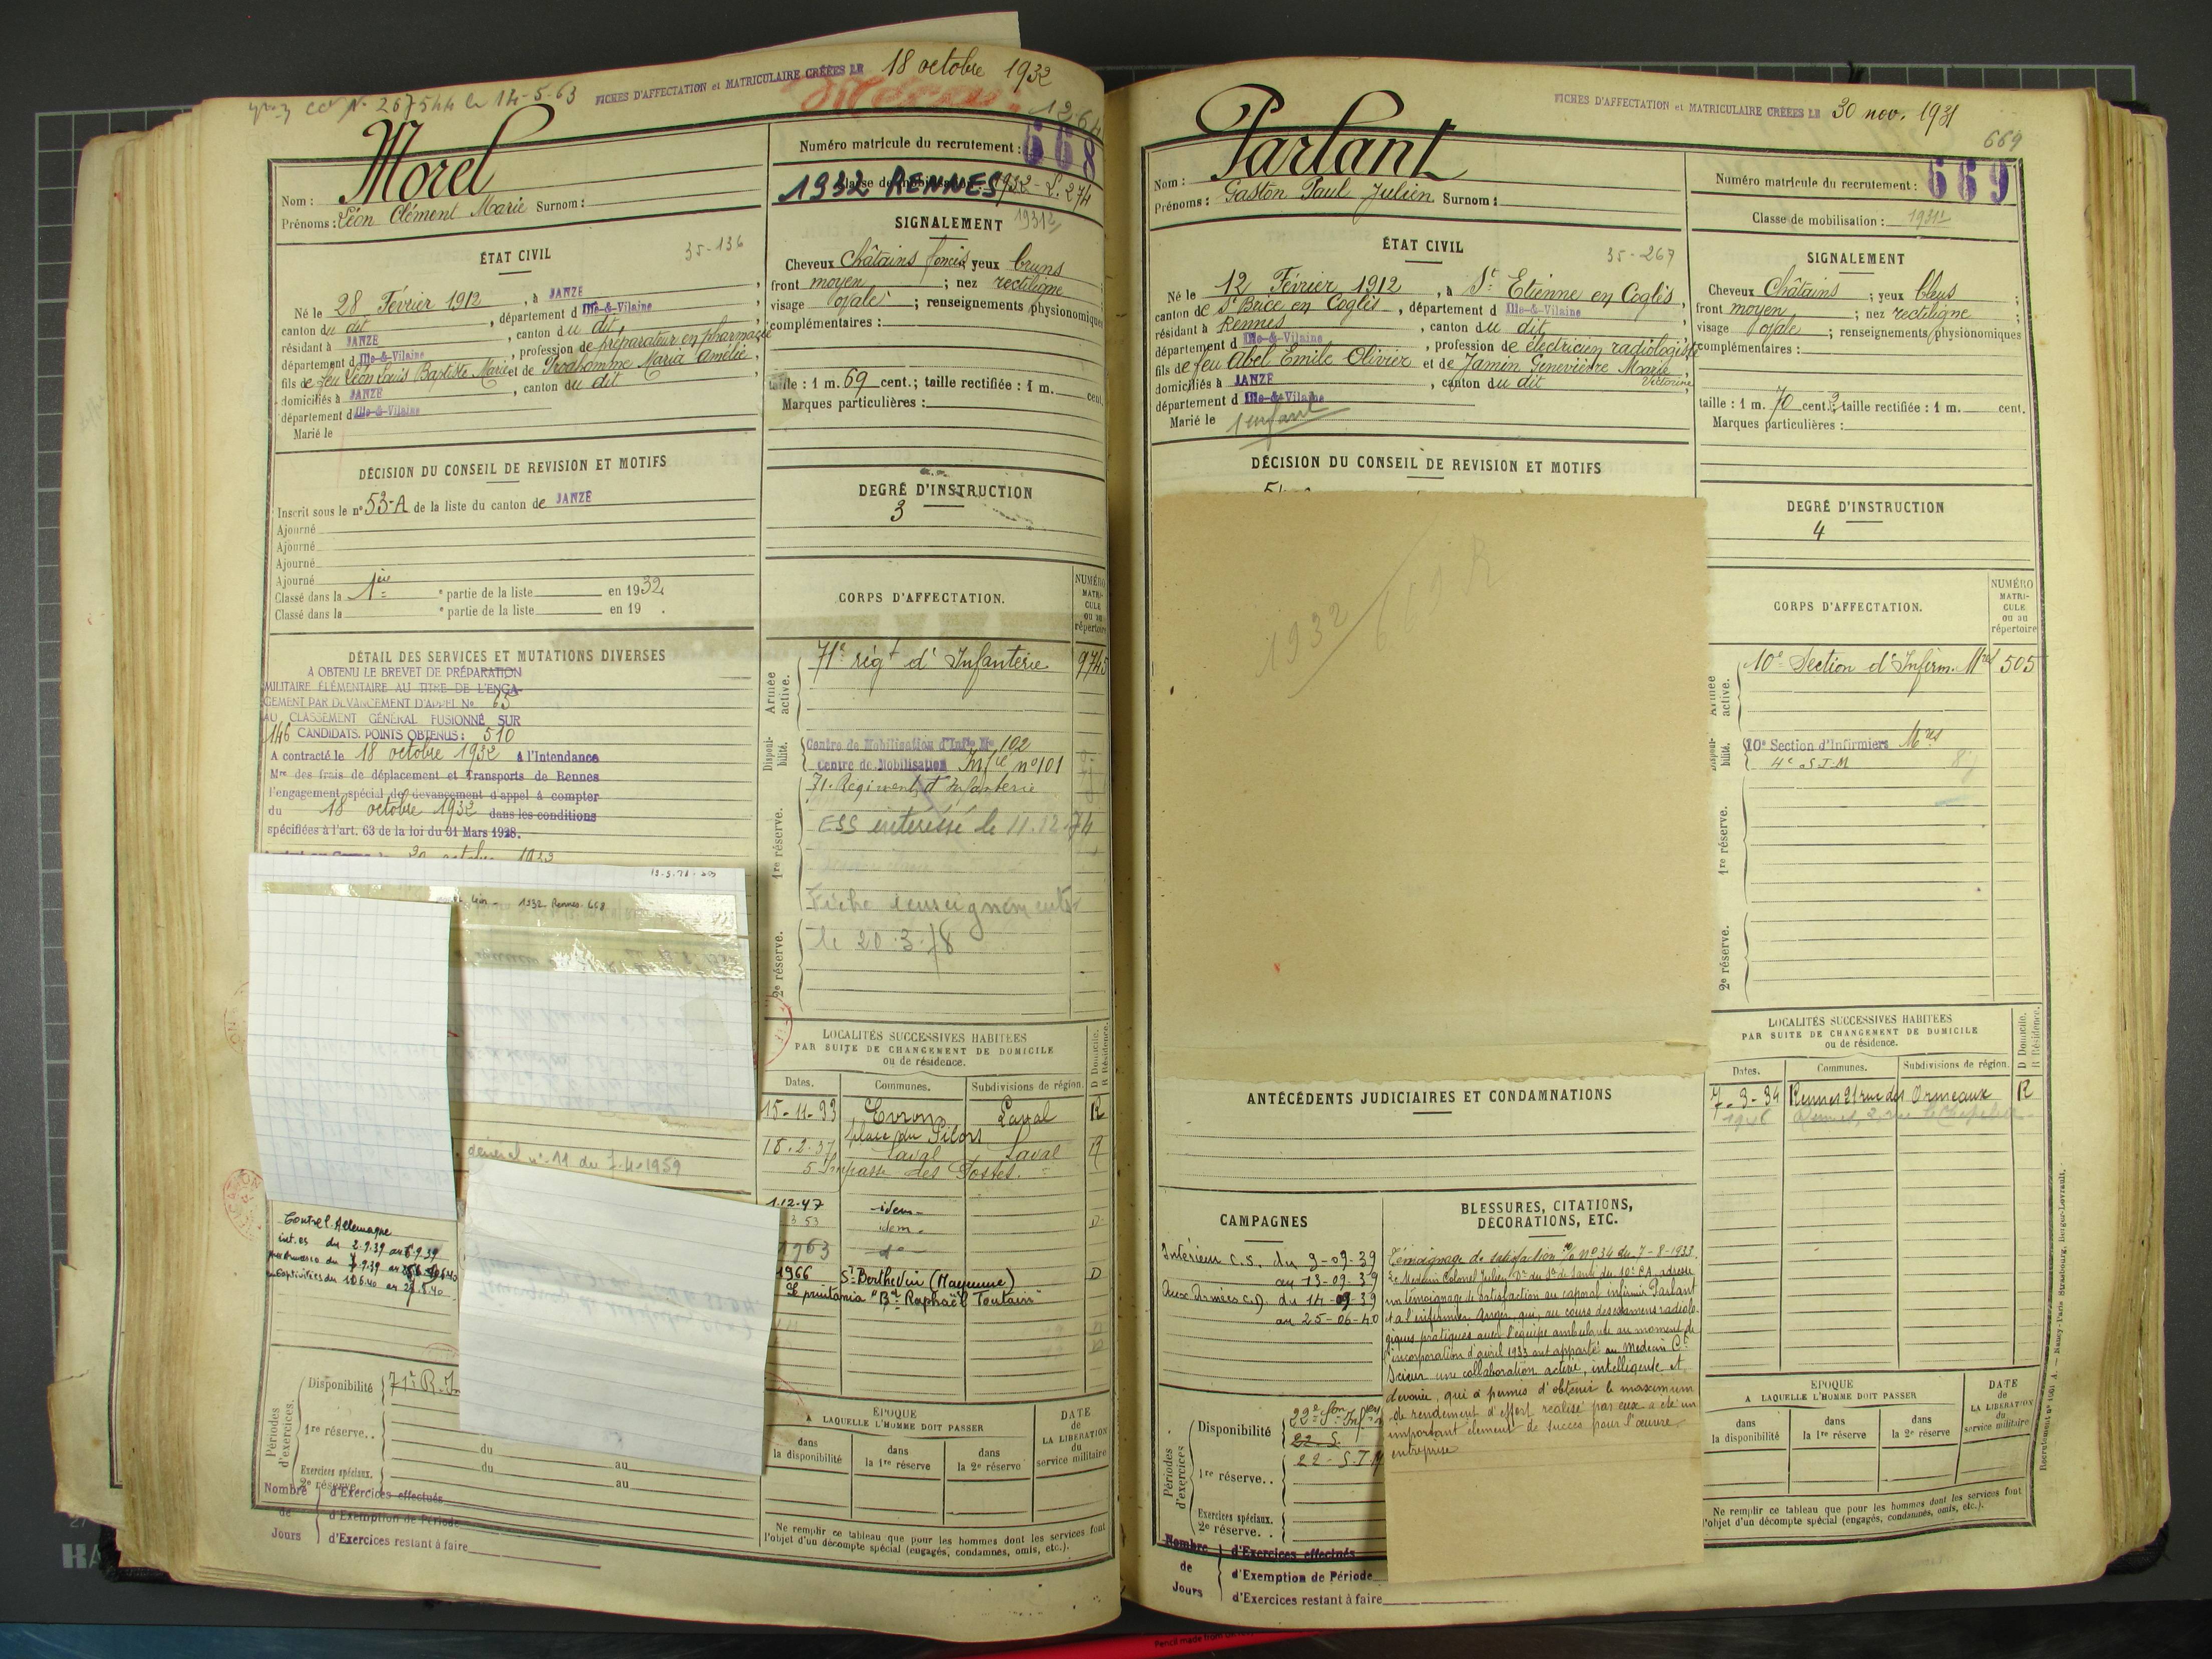 FICHES D'AFFECTATION et MATRICULAIRE CRÉÉES LE 18 octobre 1932
N° 267544 le 14-5-63
Morel
Nom :
Prénoms : Léon Clément Marie Surnom :
ÉTAT CIVIL
35-136
Né le 28 Février 1912, à JANZÉ,
canton du dit, département d Ille-&-Vilaine,
résidant à JANZÉ, canton du dit,
département d Ille-&-Vilaine, profession de préparateur en pharmacie
fils de feu Léon Louis Baptiste Marie et de Prodhomme Maria Amélie,
domiciliés à JANZÉ, canton du dit
département d Ille-&-Vilaine
Marié le
DÉCISION DU CONSEIL DE REVISION ET MOTIFS
Inscrit sous le n° 53-A de la liste du canton de JANZÉ
Ajourné
Ajourné
Ajourné
Ajourné
Classé dans la 1ère partie de la liste en 1932
Classé dans la e partie de la liste en 19 .
DÉTAIL DES SERVICES ET MUTATIONS DIVERSES
A OBTENU LE BREVET DE PRÉPARATION
MILITAIRE ÉLÉMENTAIRE AU TITRE DE L'ENGA-
GEMENT PAR DEVANCEMENT D'APPEL No 65
AU CLASSEMENT GÉNÉRAL FUSIONNÉ SUR
146 CANDIDATS. POINTS OBTENUS : 510
A contracté le 18 octobre 1932 à l'Intendance
Mre des frais de déplacement et Transports de Rennes
l'engagement spécial de devancement d'appel à compter
du 18 octobre 1932 dans les conditions
spécifiées à l'art. 63 de la loi du 31 Mars 1928.
1932 Rennes 668
général n° 11 du 7-4-1959
Contre l'Allemagne
int. es du 2.9.39 au 6.9.39
aux armées du 7.9.39 au
en captivité du 10.6.40 au 28.8.40
Périodes d'exercices.
Disponibilité 71e R.I
1re réserve. .
du au
du au
Exercices spéciaux.
2e réserve.
Nombre de Jours
d'Exercices effectués
d'Exemption de Période
d'Exercices restant à faire
Numéro matricule du recrutement : 668
Classe de mobilisation :
1932 RENNES
SIGNALEMENT
Cheveux Châtains foncés yeux bruns ;
front moyen ; nez rectiligne ;
visage ovale ; renseignements physionomiques
complémentaires :
taille : 1 m. 69 cent.; taille rectifiée : 1 m. cent.
Marques particulières :
DEGRÉ D'INSTRUCTION
3
CORPS D'AFFECTATION.
NUMÉRO MATRI-CULE ou au répertoire
Armée active.
71e régt d'Infanterie 9745
Disponi-bilité.
Centre de Mobilisation d'Infie No 102
Centre de Mobilisation Infie n° 101
1re réserve.
71. Régiment d'Infanterie
ESS intéressé le 11.12.74
Fiche renseignements
2e réserve.
le 20.3.78
LOCALITÉS SUCCESSIVES HABITÉES
PAR SUITE DE CHANGEMENT DE DOMICILE
ou de résidence.
D Domicile.
R Résidence.
Dates. Communes. Subdivisions de région.
15-11-33 Evron Laval R
place du Pilori
15-2-37 Laval Laval R
5 Impasse des Fossés
1.12.47 idem
3 53 idem D
1963 d°
1966 St Berthevin (Mayenne) D
Le printania "Bd Raphaël Toutain"
ÉPOQUE
A LAQUELLE L'HOMME DOIT PASSER
DATE de LA LIBÉRATION du service militaire
dans la disponibilité
dans la 1re réserve
dans la 2e réserve
Ne remplir ce tableau que pour les hommes dont les services font
l'objet d'un décompte spécial (engagés, condamnés, omis, etc.).
FICHES D'AFFECTATION et MATRICULAIRE CRÉÉES LE 30 nov. 1931
669
Parlant
Nom :
Prénoms : Gaston Paul Julien Surnom :
ÉTAT CIVIL
35-267
Né le 12 Février 1912, à St Etienne en Coglès,
canton de St Brice en Coglès, département d Ille-&-Vilaine
résidant à Rennes, canton du dit,
département d Ille-&-Vilaine, profession de électricien radiologiste
fils de feu Abel Emile Olivier et de Jamin Geneviève Marie Victorine,
domiciliés à JANZÉ, canton du dit
département d Ille-&-Vilaine
Marié le 1 enfant
DÉCISION DU CONSEIL DE REVISION ET MOTIFS
1932 / 669 R
ANTÉCÉDENTS JUDICIAIRES ET CONDAMNATIONS
CAMPAGNES
Intérieur C.S. du 3-09-39
au 13-09-39
Aux Armées C.D. du 14-09-39
au 25-06-40
BLESSURES, CITATIONS,
DÉCORATIONS, ETC.
Témoignage de satisfaction n° 34 du 7-8-1933.
Le Médecin Colonel Julien, Dr du Sce de Santé du 10e CA, adresse
un témoignage de satisfaction au caporal infirmier Parlant
et à l'infirmier Anger, qui, au cours des examens radiolo-
giques pratiqués avec l'équipe ambulante au moment de
l'incorporation d'avril 1933 ont apporté au Médecin Ct
Scieur une collaboration active, intelligente et
dévouée, qui a permis d'obtenir le maximum
de rendement d'effort réalisé par eux a été un
important élément de succès pour l'œuvre
entreprise
Périodes d'exercices
Disponibilité
22 - S.
1re réserve. .
Exercices spéciaux.
2e réserve. .
Nombre de Jours
d'Exercices effectués
d'Exemption de Période
d'Exercices restant à faire
Numéro matricule du recrutement : 669
Classe de mobilisation : 1931
SIGNALEMENT
Cheveux Châtains ; yeux bleus ;
front moyen ; nez rectiligne ;
visage ovale ; renseignements physionomiques
complémentaires :
taille : 1 m. 70 cent.; taille rectifiée : 1 m. cent.
Marques particulières :
DEGRÉ D'INSTRUCTION
4
CORPS D'AFFECTATION.
NUMÉRO MATRI-CULE ou au répertoire
Armée active.
10e Section d'Infirm. Mres 505
Disponi-bilité.
10e Section d'Infirmiers Mres
4e S I M
1re réserve.
2e réserve.
LOCALITÉS SUCCESSIVES HABITÉES
PAR SUITE DE CHANGEMENT DE DOMICILE
ou de résidence.
D Domicile.
R Résidence.
Dates. Communes. Subdivisions de région.
7-3-34 Rennes 21 rue des Ormeaux R
ÉPOQUE
A LAQUELLE L'HOMME DOIT PASSER
DATE de LA LIBÉRATION du service militaire
dans la disponibilité
dans la 1re réserve
dans la 2e réserve
Ne remplir ce tableau que pour les hommes dont les services font
l'objet d'un décompte spécial (engagés, condamnés, omis, etc.).
Nancy-Paris Strasbourg, Berger-Levrault.